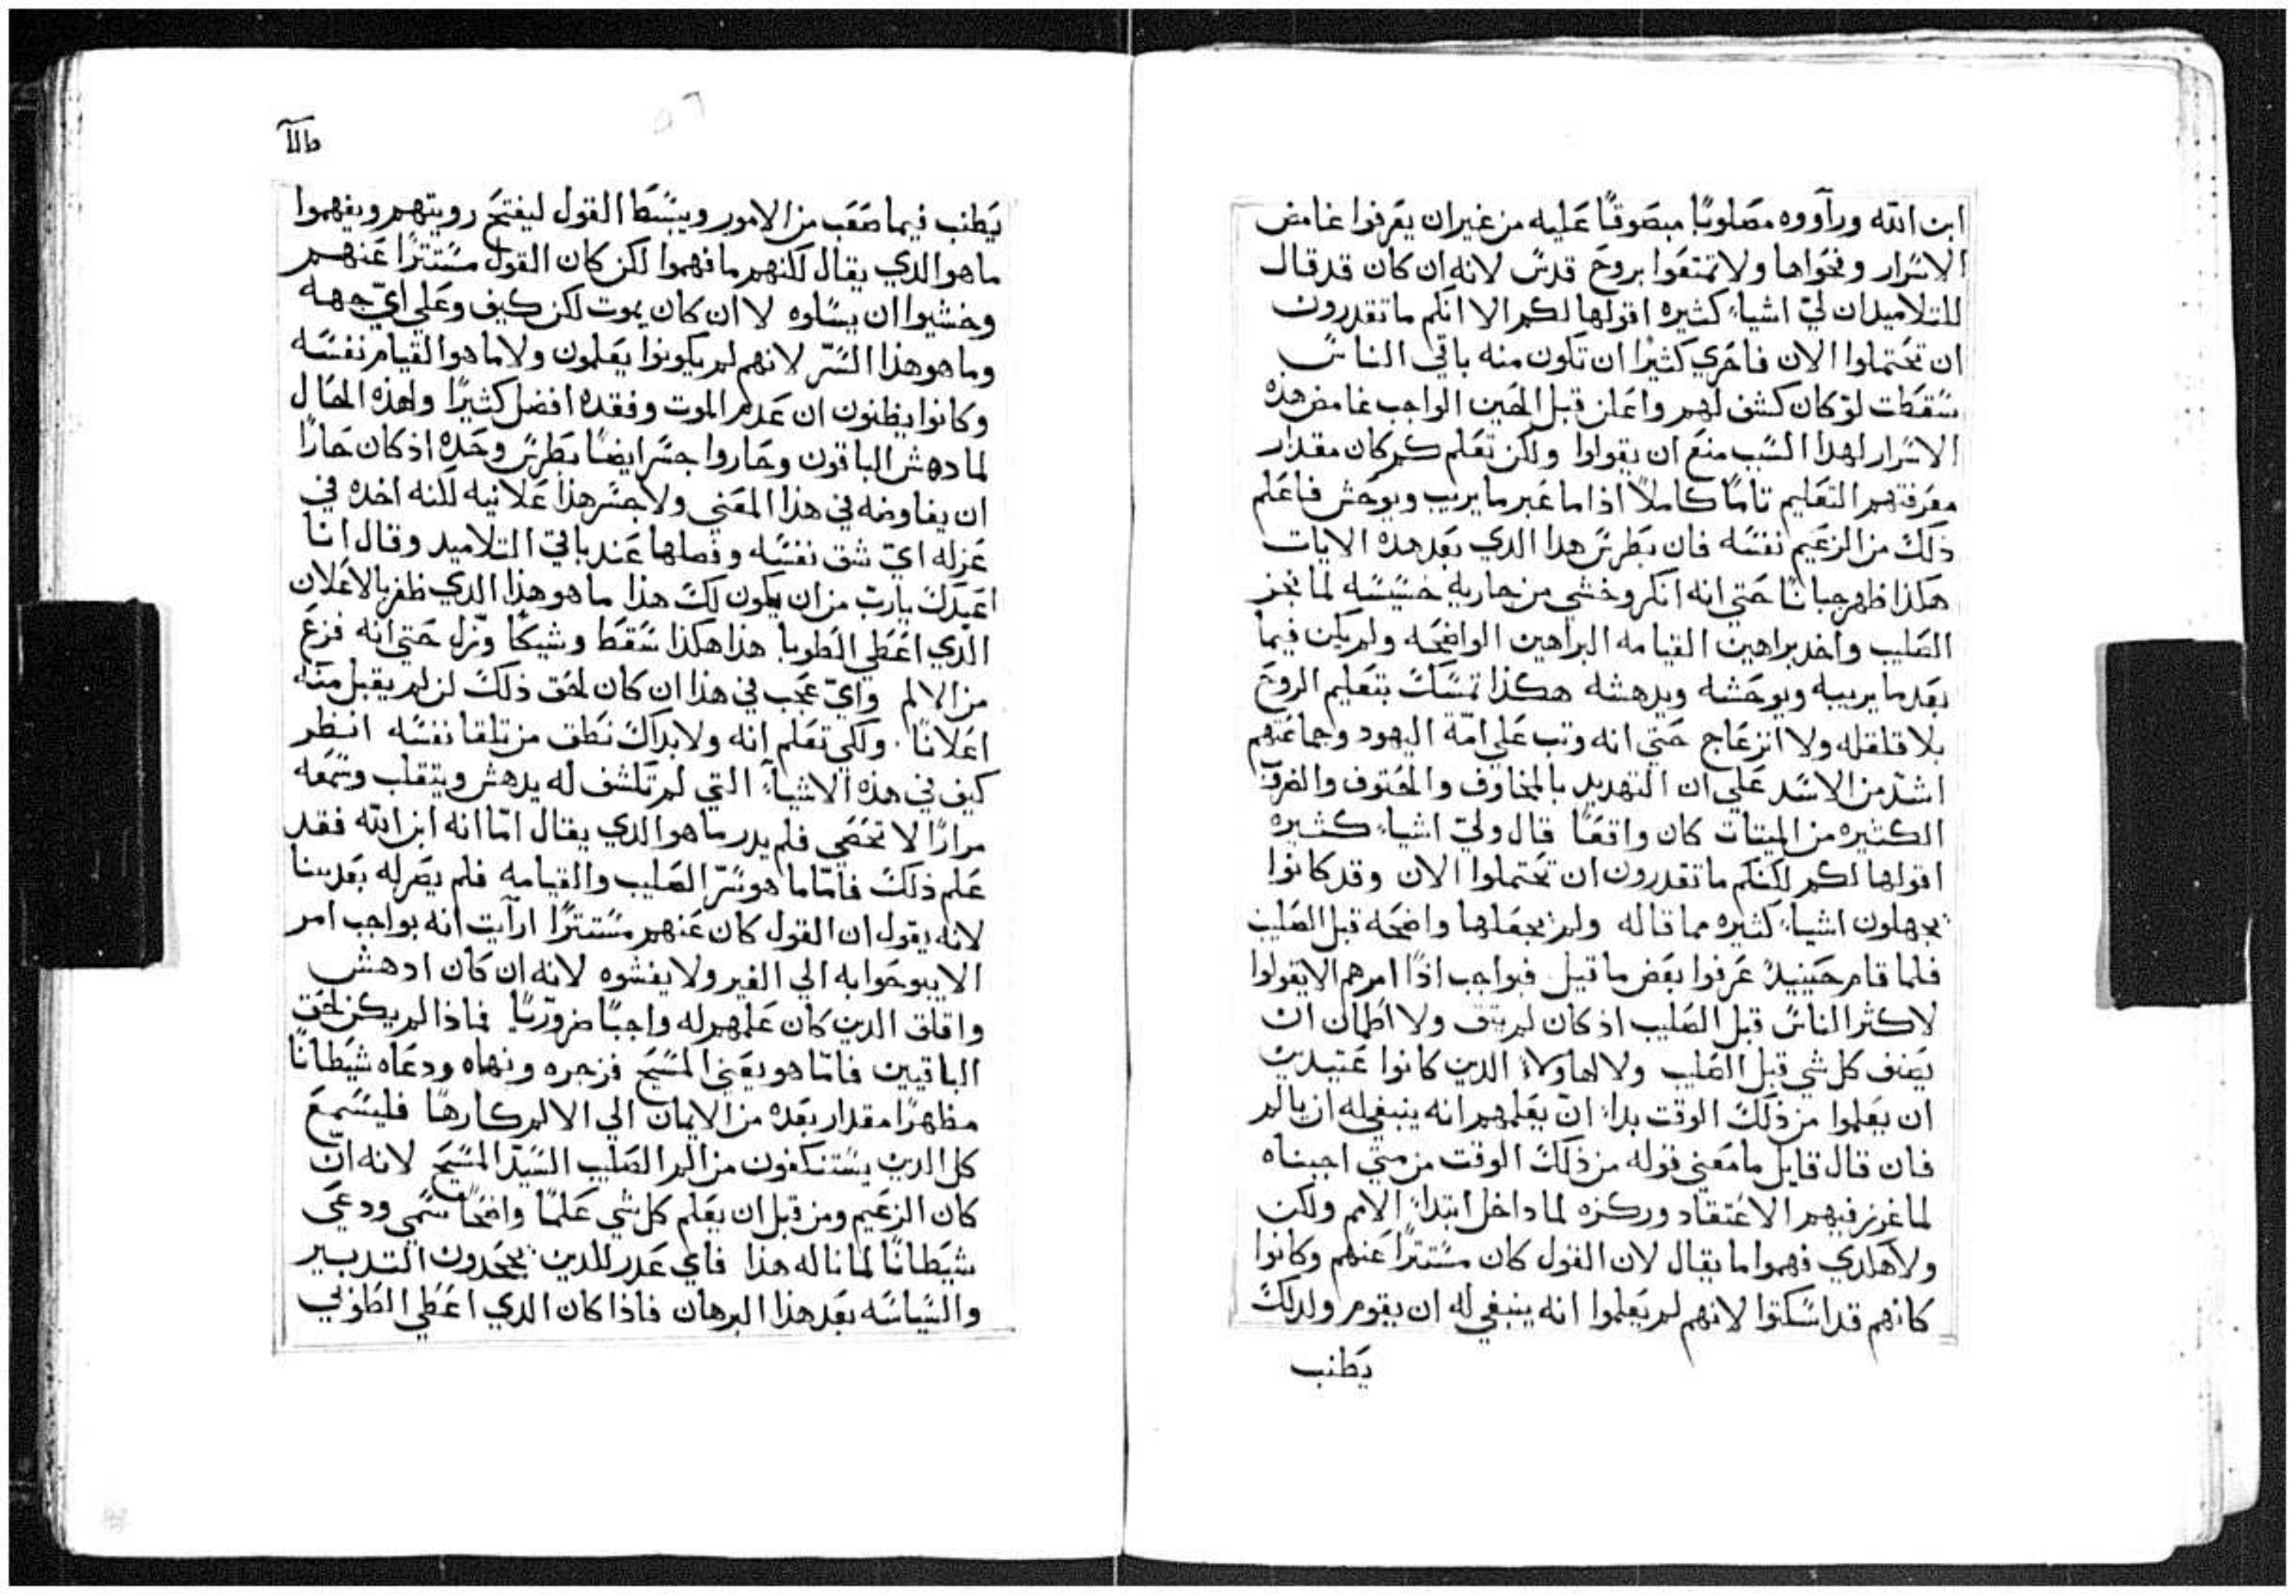 ابن الله ورآووه مصَلوبًا مبصَوقًا عَليه من غير ان يعَرفوا غامض
الاسَرار ونحَواها ولا تمتعَوا بروحَ قدسَ لانه ان كان قد قال
للتلاميد ان لي اشياء كثيره اقولها لكم الا انكم ما تقدرون
ان تحَتملوا الان فاحَري كثيرًا ان تكون منه باقي الناسَ
سَقطَت لو كان كشف لهم واعَلن قبل الحَين الواجب غامض هذه
الاسَرار لهدا السَبب منعَ ان يقولوا ولكن تعَلم كم كان مقدار
معَرفتهم التعَليم تامًا كاملاً اذا ما عَبر ما يريب ويوحَش فاعَلم
ذلك من الزعَيم نفسَه فان بطَرسَ هدا الدي بعَد هده الايات
هكذا ظهر جبانًا حَتي انه انكر وخشي من جاريه خسَيسَه لما نجز
الصَليب واخد براهين القيامه البراهين الواضحَه ولم يكن فيما
بعَد ما يريبه ويوحَشه ويدهشه هكذا تمسَك بتعَليم الروحَ
بلا قلقله ولا انزعَاج حَتي انه وتب عَلي امّة اليهود وجماعَتهم
اشدّ من الاسَد عَلي ان التهديد بالمخاوف والحَتوف والفرق
الكثيره من الميتات كان واقعًا قال ولي اشياء كثيره
اقولها لكم لكنكم ما تقدرون ان تحَتملوا الان وقد كانوا
يجهلون اشياء كثيره مما قاله ولم يجعَلها واضحَه قبل الصَليب
فلما قام حَينيدٍ عَرفوا بعَض ما قيل فبواجب اذًا امرهم الا يقولوا
لاكثر الناسَ قبل الصَليب اذ كان لم يتف ولا اطَمان ان
يصَف كل شي قبل الصَليب ولا لهاولاء الدين كانوا عَتيدين
ان يعَلموا من ذلك الوقت بداء ان يعَلمهم انه ينبغي له ان يالم
فان قال قايل ما معَني قوله من ذلك الوقت من متي اجبناه
لما غرز فيهم الاعَتقاد وركزه لما داخل ابتداء الامم ولكن
ولا هلدي فهموا ما يقال لان القول كان مسَتترًا عَنهم وكانوا
كانهم قد اسَكتوا لانهم لم يعَلموا انه ينبغي له ان يقوم ولدلك
يطَنب
يطَنب فيما صَعَب من الامور ويبسَط القول ليفتحَ رويتهم ويفهموا
ما هو الدي يقال لكنهم ما فهموا لكن كان القول مسَتترًا عَنهم
وخشيوا ان يسَالوه لا ان كان يموت لكن كيف وعَلي ايّ جهه
وما هو هذا السَرّ لانهم لم يكونوا يعَلمون ولا ما هو القيام نفسَه
وكانوا يظنون ان عَدم الموت وفقده افضل كثيرًا ولهذه الحَال
لما دهش الباقون وحَاروا جسَر ايضًا بطَرسَ وحَده اذ كان حَارًا
ان يفاوضه في هذا المعَني ولا جسَر هذا عَلانيه لكنه اخده في
عَزله ايّ شق نفسَه وفصَلها عَند باقي التلاميد وقال انا
اعَيدك يا ربّ من ان يكون لك هذا ما هو هذا الدي ظفر بالاعَلان
الدي اعَطَي الطَوبا هذا هكذا سَقطَ وشيكًا وزل حَتي انه فزعَ
من الالم وايّ عَجب في هذا ان كان لحَق ذلك لمن لم يقبل منه
اعَلانًا ولكي تعَلم انه ولا بداك نطَق من تلقا نفسَه انظر
كيف في هذه الاشياء التي لم تكشف له يدهش ويتقلب وسَمعَه
مرارًا لا تحَصَي فلم يدر ما هو الدي يقال امّا انه ابن الله فقد
عَلم ذلك فامّا ما هو سَرّ الصَليب والقيامه فلم يصَر له بعَد بينا
لانه يقول ان القول كان عَنهم مسَتترًا ارآيت انه بواجب امر
الا يبوحَوا به الي الغير ولا يفشوه لانه ان كان ادهش
واقلق الدين كان عَلمهم له واجبًا ضروريًا فماذا لم يكن لحَق
الباقيين فامّا هو يعَني المسَيحَ فزجره ونهاه ودعَاه شيطَانًا
مظهرًا مقدار بعَده من الايمان الي الالم كارهًا فليسَمعَ
كل الدين يسَتنكفون من الم الصَليب السَيّد المسَيحَ لانه ان
كان الزعَيم ومن قبل ان يعَلم كل شي عَلمًا واضحًا سَمي ودعَي
شيطَانًا لما ناله هذا فاي عَدر للدين يجحَدون التدبير
والسَياسَه بعَد هذا البرهان فاذا كان الدي اعَطَي الطَوبي